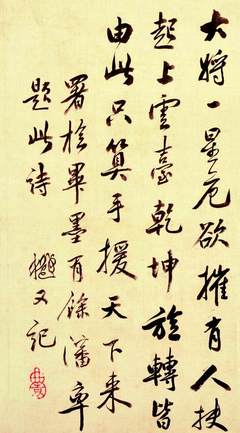 大將一星危欲摧有人扶
起上雲臺乾坤旋轉皆
由此只算手援天下来
署檢畢墨有餘瀋率
題此詩 樾又記
曲園